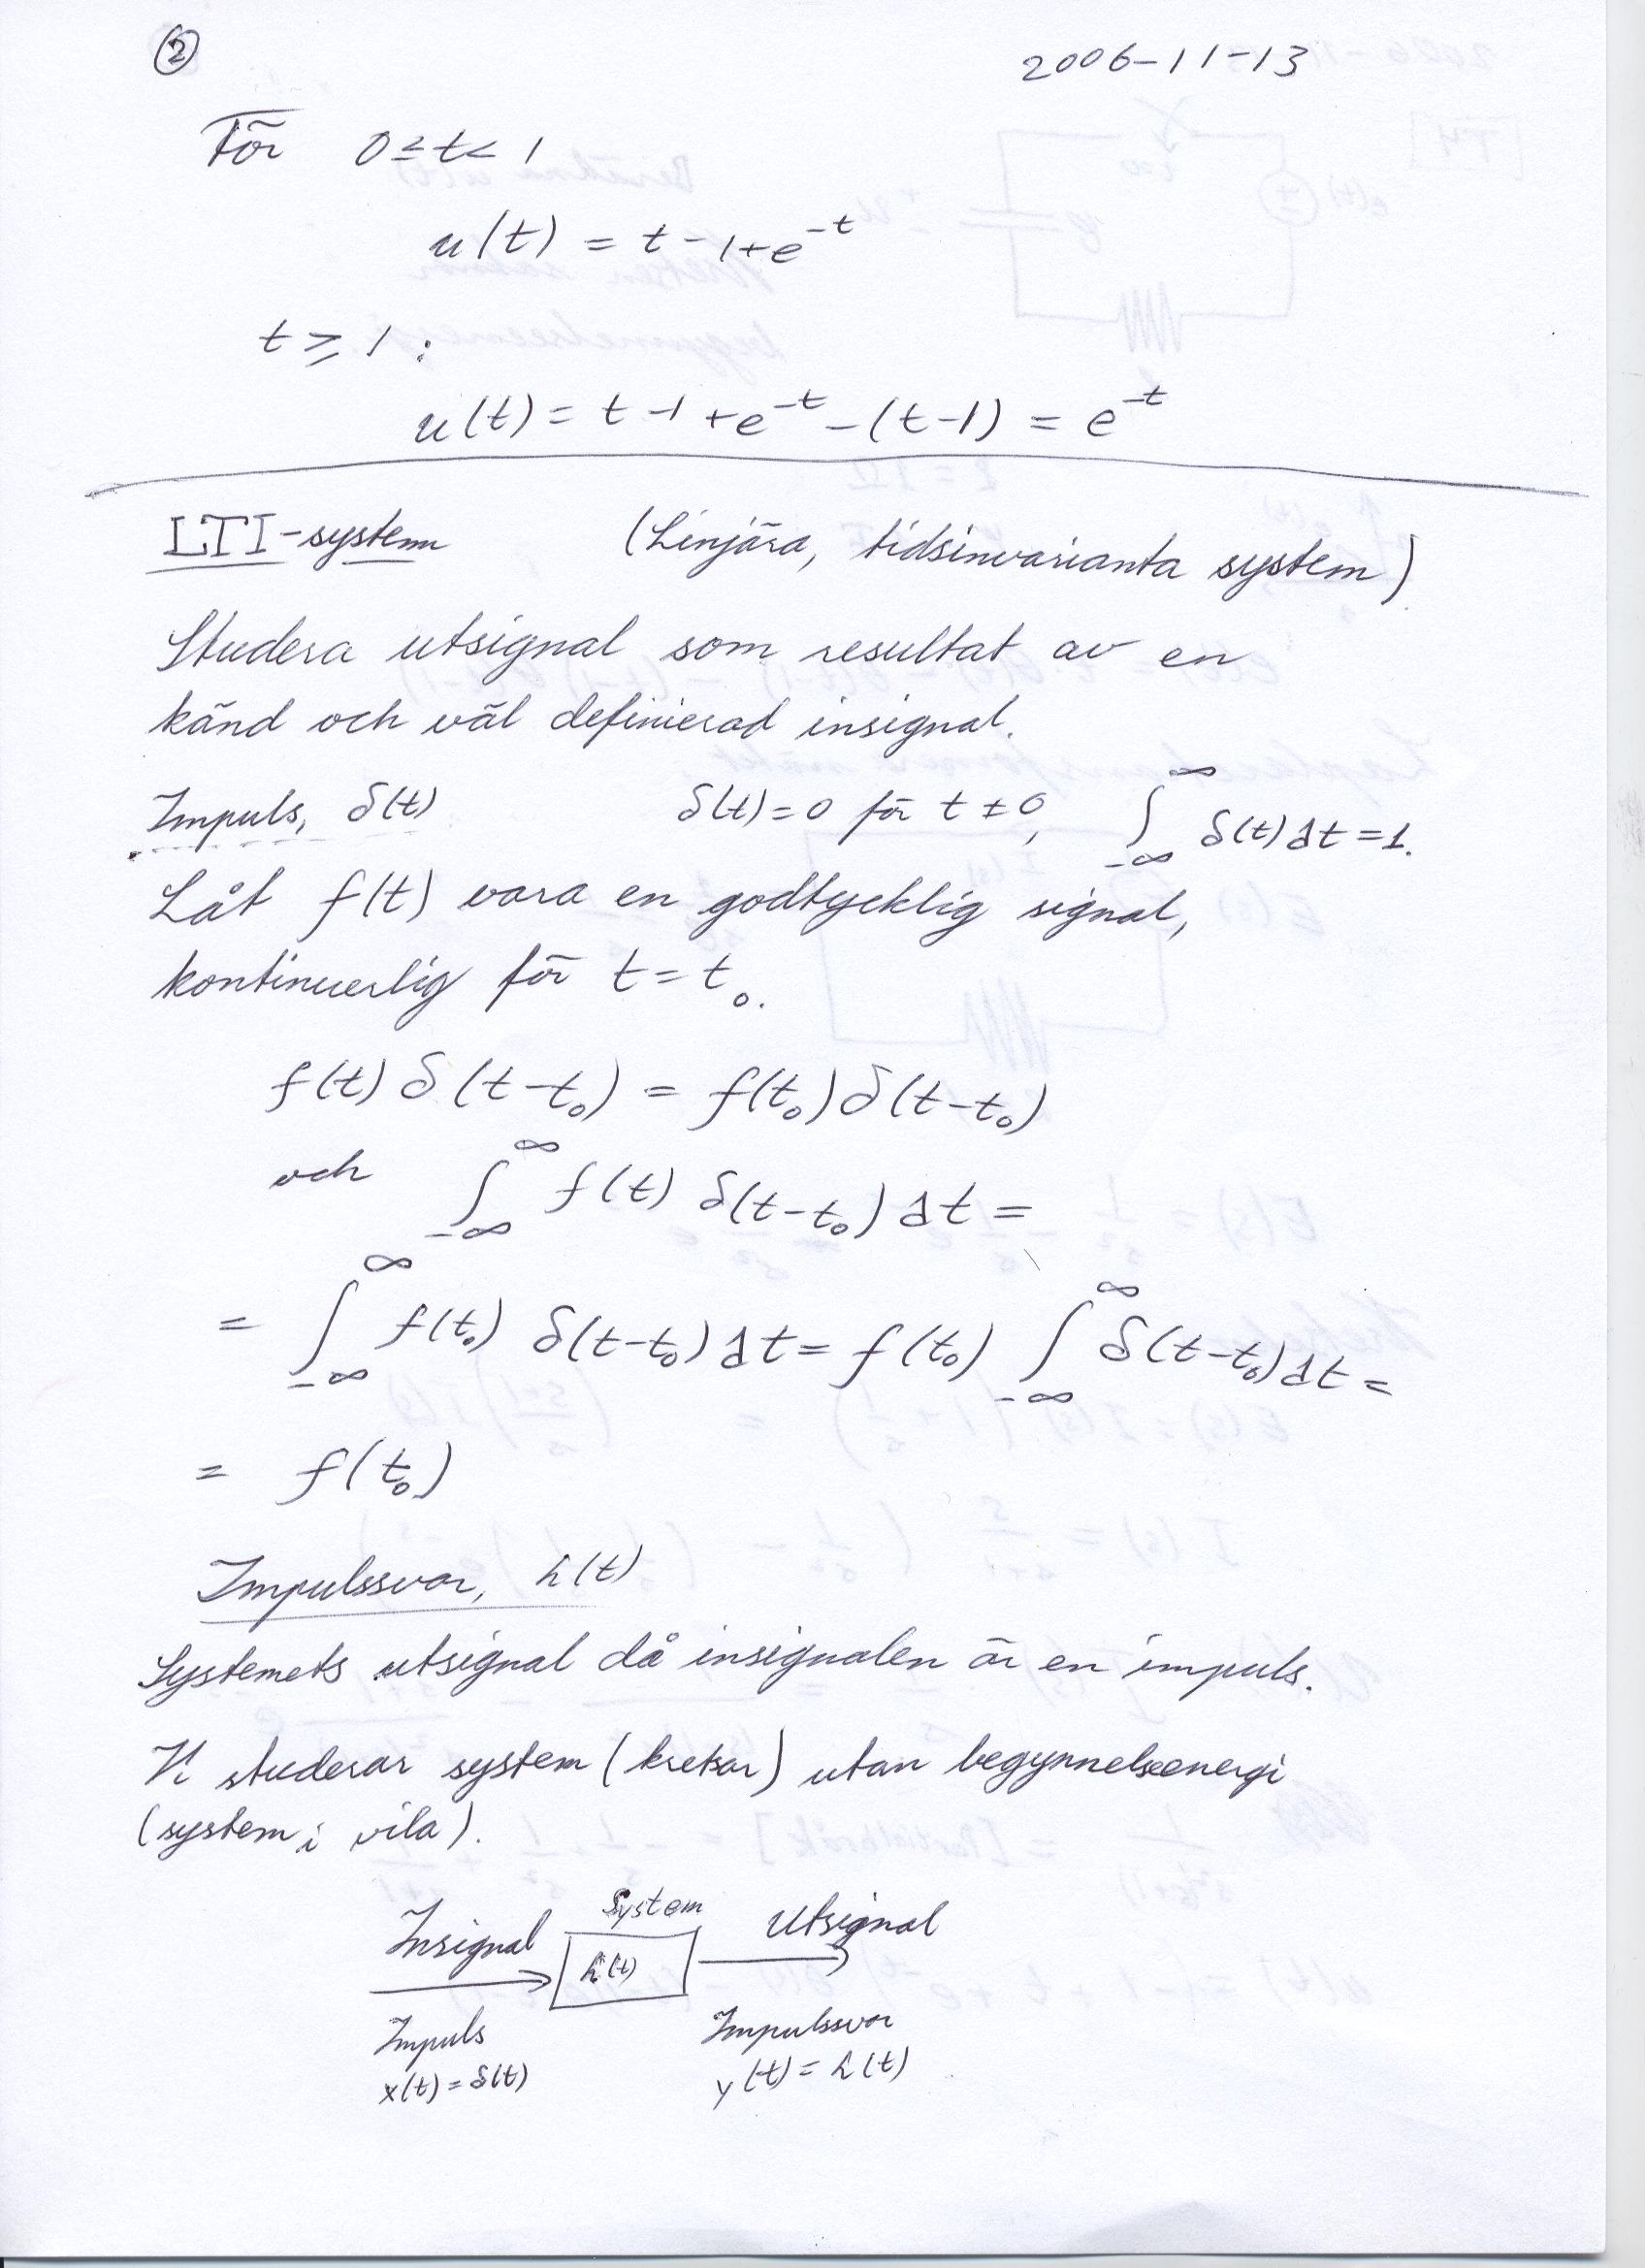 2
2006-11-13
För 0≤t<1
u(t) = t-1+e^-t
t ≥ 1 :
u(t) = t-1+e^-t-(t-1) = e^-t
LTI-system (Linjära, tidsinvarianta system)
Studera utsignal som resultat av en
känd och väl definierad insignal.
Impuls, δ(t) δ(t)=0 för t≠0, ∫_-∞^∞ δ(t)dt=1.
Låt f(t) vara en godtycklig signal,
kontinuerlig för t=t₀.
f(t)δ(t-t₀) = f(t₀)δ(t-t₀)
och ∫_-∞^∞ f(t) δ(t-t₀)dt=
= ∫_-∞^∞ f(t₀) δ(t-t₀)dt= f(t₀) ∫_-∞^∞ δ(t-t₀)dt=
= f(t₀)
Impulssvar, h(t)
Systemets utsignal då insignalen är en impuls.
Vi studerar system (kretsar) utan begynnelseenergi
(system i vila).
Insignal System Utsignal
h(t)
Impuls Impulssvar
x(t)=δ(t) y(t)=h(t)